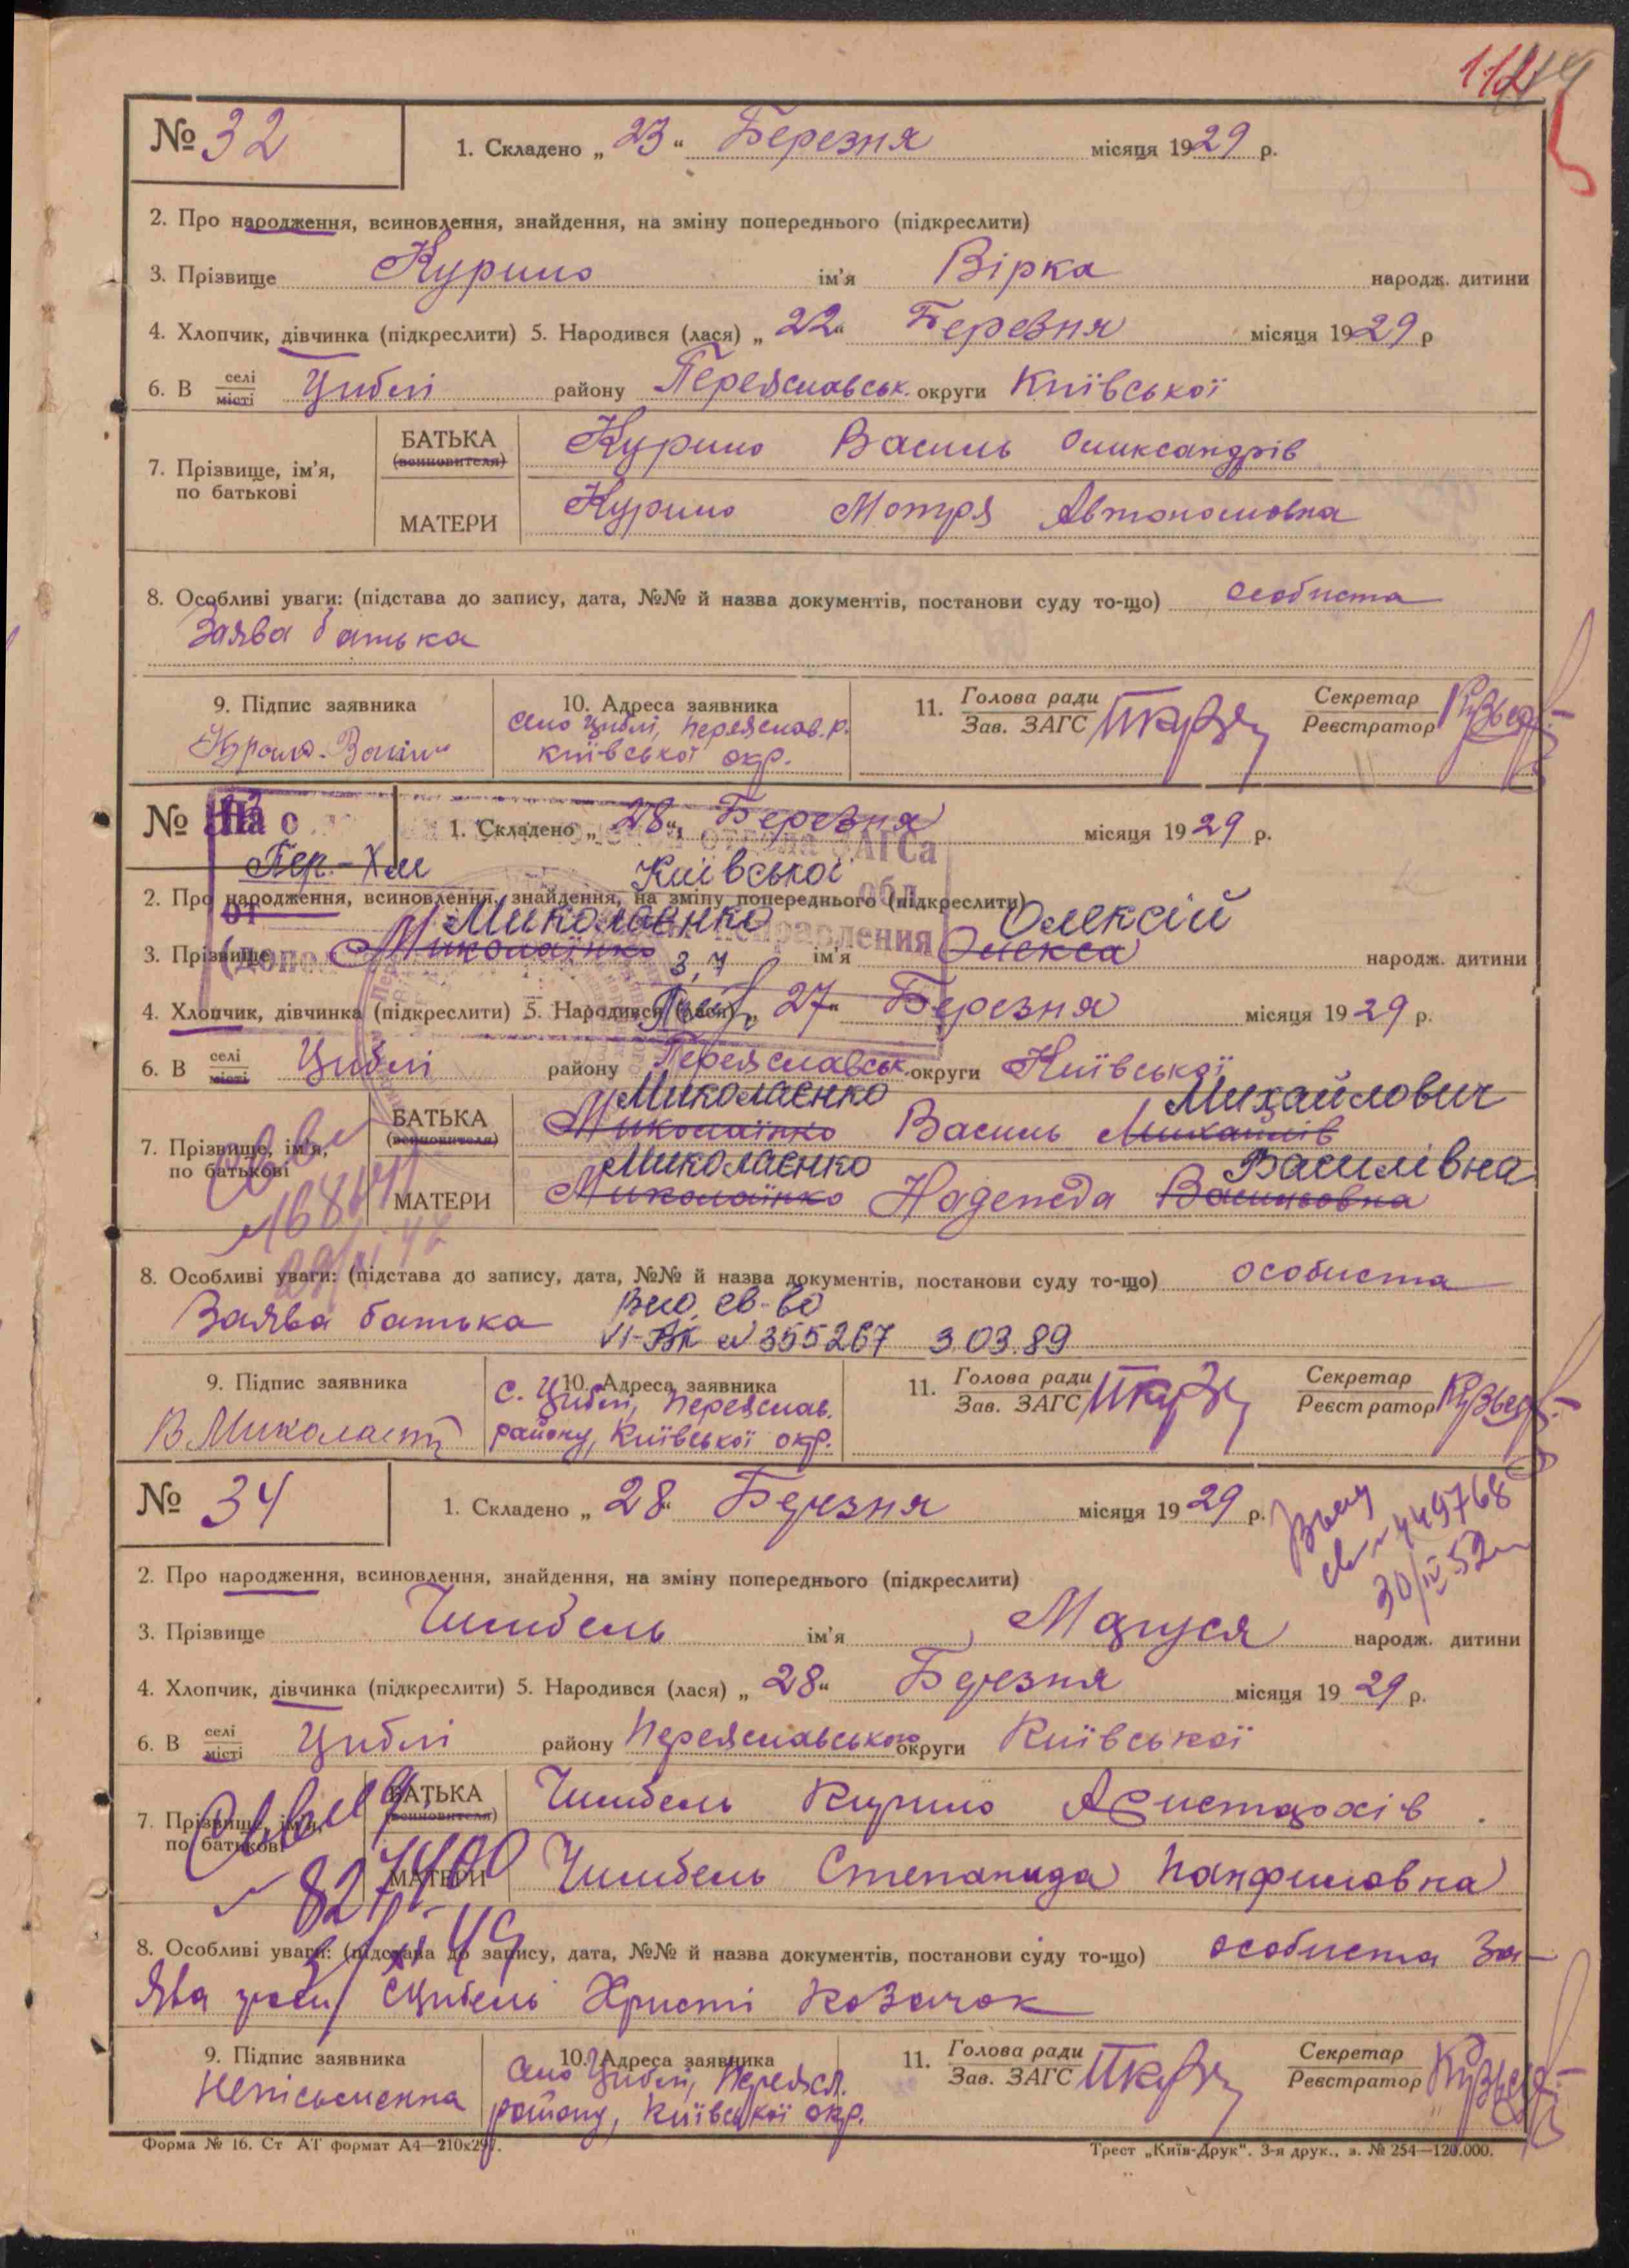 112
№ 32
1. Складено „23“ Березня місяця 1929 р.
2. Про народження, всиновлення, знайдення, на зміну попереднього (підкреслити)
3. Прізвище Курило ім'я Вірка народж. дитини
4. Хлопчик, дівчинка (підкреслити) 5. Народився (лася) „22“ Березня місяця 1929 р
6. В селі місті Циблі району Переяславськ. округи Київської
7. Прізвище, ім'я, по батькові
БАТЬКА (всиновителя) Курило Василь Олександрів
МАТЕРИ Курило Мотря Автономовна
8. Особливі уваги: (підстава до запису, дата, №№ й назва документів, постанови суду то-що) особиста
Заява батька
9. Підпис заявника
10. Адреса заявника
село Циблі, Переяслав. р.
Київської окр.
11. Голова ради Зав. ЗАГС
Секретар Реєстратор
№
1. Складено „28“ Березня місяця 1929 р.
Пер.-Хм Київської обл
2. Про народження, всиновлення, знайдення, на зміну попереднього (підкреслити)
Миколаєнко Олексій
3. Прізвище Миколаїнко ім'я Олекса народж. дитини
3,7
4. Хлопчик, дівчинка (підкреслити) 5. Народився (лася) „27“ Березня місяця 1929 р.
6. В селі місті Циблі району Переяславськ. округи Київської
Миколаєнко Михайлович
7. Прізвище, ім'я, по батькові
БАТЬКА (всиновителя) Миколаїнко Василь Михайлів
Миколаєнко Василівна
МАТЕРИ Миколаїнко Надежда Васильовна
8. Особливі уваги: (підстава до запису, дата, №№ й назва документів, постанови суду то-що) особиста
Заява батька
св-во
№ 355267 3.03.89
9. Підпис заявника
10. Адреса заявника
с. Циблі, Переяслав.
району, Київської окр.
11. Голова ради Зав. ЗАГС
Секретар Реєстратор
№ 34
1. Складено „28“ Березня місяця 1929 р.
449768
30/IV 52
2. Про народження, всиновлення, знайдення, на зміну попереднього (підкреслити)
3. Прізвище ім'я Маруся народж. дитини
4. Хлопчик, дівчинка (підкреслити) 5. Народився (лася) „28“ Березня місяця 1929 р.
6. В селі місті Циблі району Переяславського округи Київської
7. Прізвище, ім'я, по батькові
БАТЬКА (всиновителя) Кирило Аристархів
МАТЕРИ Степанида Панфиловна
8. Особливі уваги: (підстава до запису, дата, №№ й назва документів, постанови суду то-що) особиста за-
ява Христі Козачок
9. Підпис заявника
Неписьменна
10. Адреса заявника
село Циблі, Переясл.
району, Київської окр.
11. Голова ради Зав. ЗАГС
Секретар Реєстратор
Форма № 16. Ст АТ формат А4—210х297.
Трест „Київ-Друк“. 3-я друк., з. № 254—120.000.